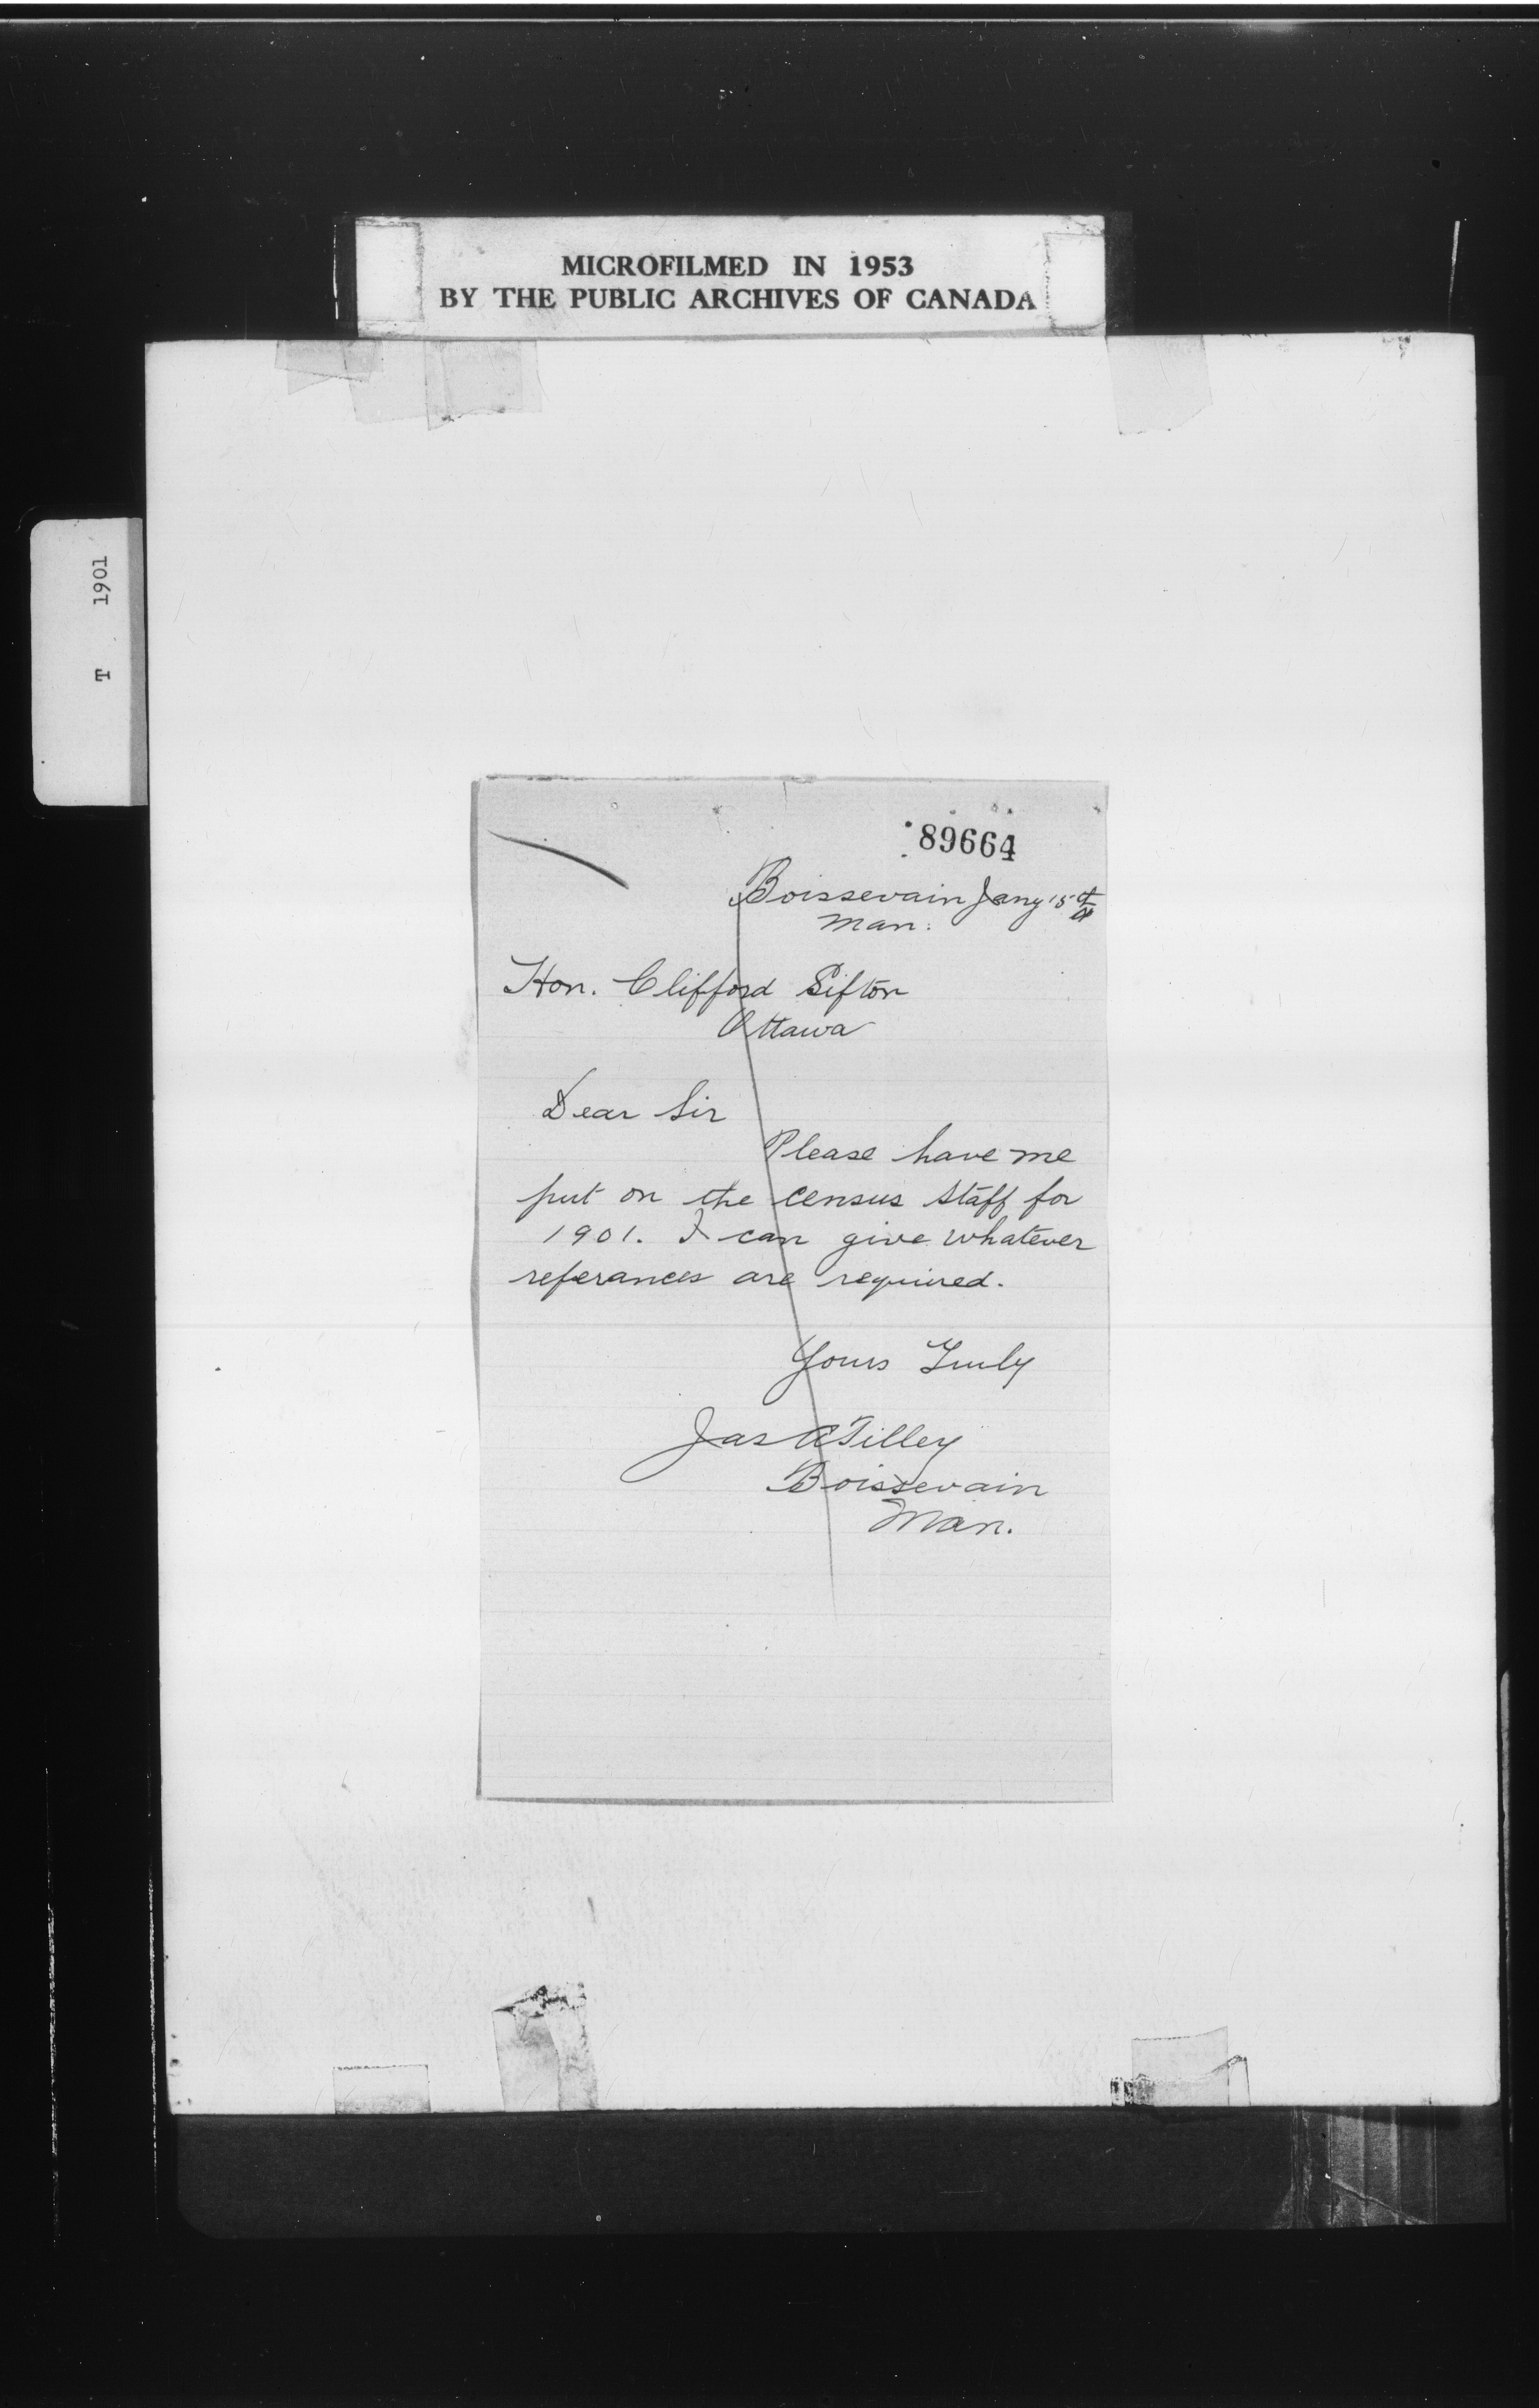 MICROFILMED IN 1953
BY THE PUBLIC ARCHIVES OF CANADA
T 1901
89664
Boissevain Jany 15
Man.
Hon. Clifford Sifton
Ottawa
Dear Sir
Please have me
put on the census staff for
1901. I can give whatever
referances are required.
Yours Truly
Jas A Tilley
Boissevain
Man.